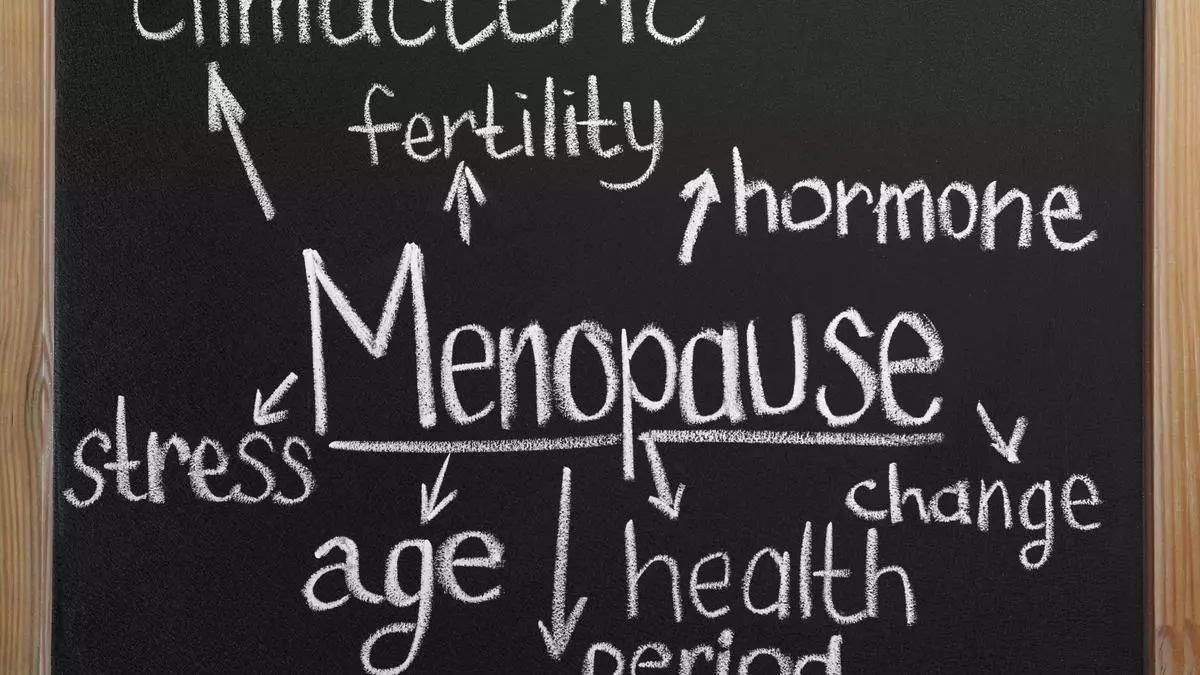 climacteric
fertility
hormone
Menopause
stress
change
age
health
period